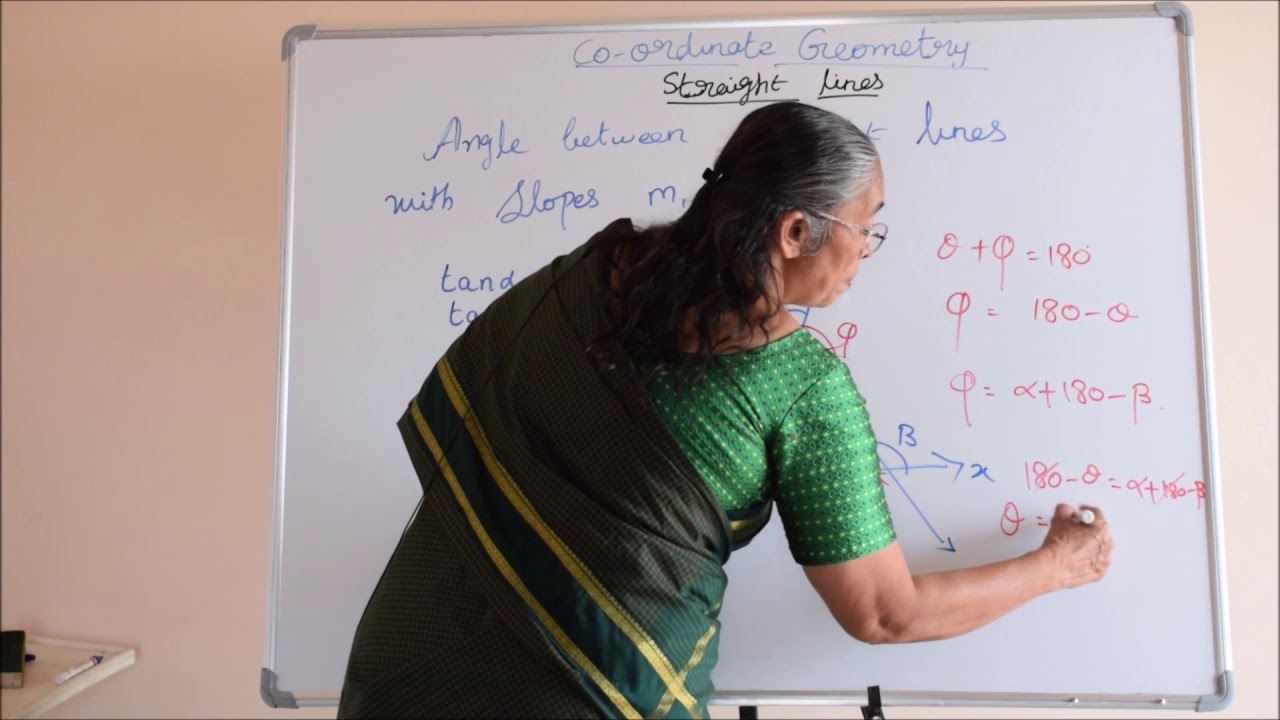 Co-ordinate Geometry
Straight lines
Angle between lines
with Slopes m₁
θ + φ = 180°
φ = 180 - θ
φ
φ = α + 180 - β.
β
x
180 - θ = α + 180 - β
θ =